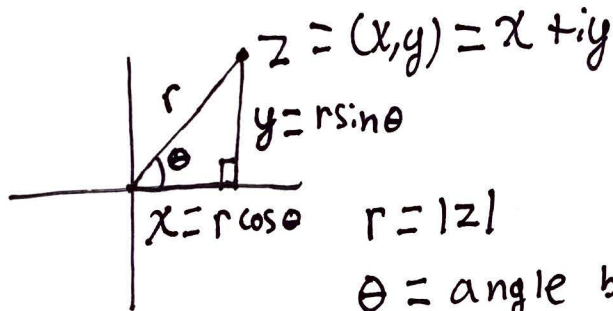 z = (x,y) = x + iy
r
θ
y = r sinθ
x = r cosθ
r = |z|
θ = angle